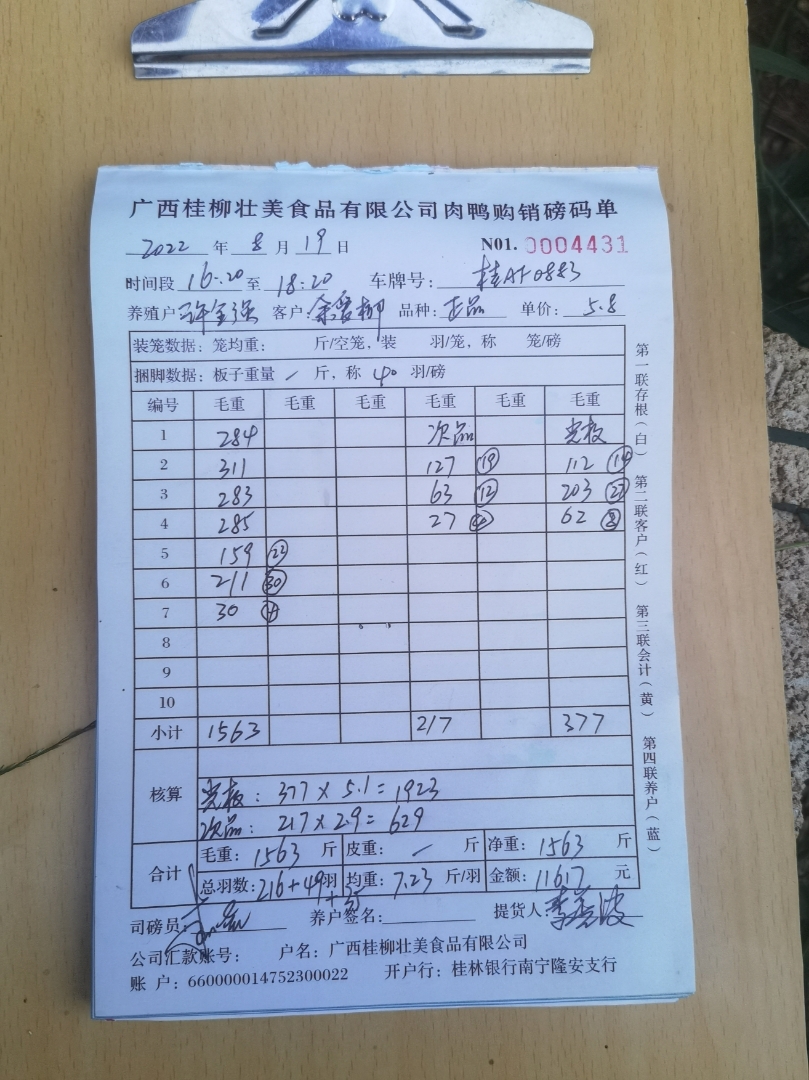 广西桂柳壮美食品有限公司肉鸭购销磅码单
2022 年 8 月 19 日 N01. 0004431
时间段 16:20 至 18:20 车牌号: 桂AF0883
养殖户: 许金强 客户: 品种: 正品 单价: 5.8
装笼数据: 笼均重: 斤/空笼, 装 羽/笼, 称 笼/磅
捆脚数据: 板子重量 / 斤, 称 40 羽/磅
编号 毛重 毛重 毛重 毛重 毛重 毛重
1 284 次品 光板
2 311 127 19 112 14
3 283 63 12 203 27
4 285 27 62 8
5 159 22
6 211 30
7 30 4
8
9
10
小计 1563 217 377
核算
光板: 377 x 5.1 = 1923
次品: 217 x 2.9 = 629
合计 毛重: 1563 斤 皮重: / 斤 净重: 1563 斤
总羽数: 216+49羽 均重: 7.23 斤/羽 金额: 11617 元
司磅员: 养户签名: 提货人:
公司汇款账号: 户名: 广西桂柳壮美食品有限公司
账 户: 660000014752300022 开户行: 桂林银行南宁隆安支行
第一联存根(白) 第二联客户(红) 第三联会计(黄) 第四联养户(蓝)